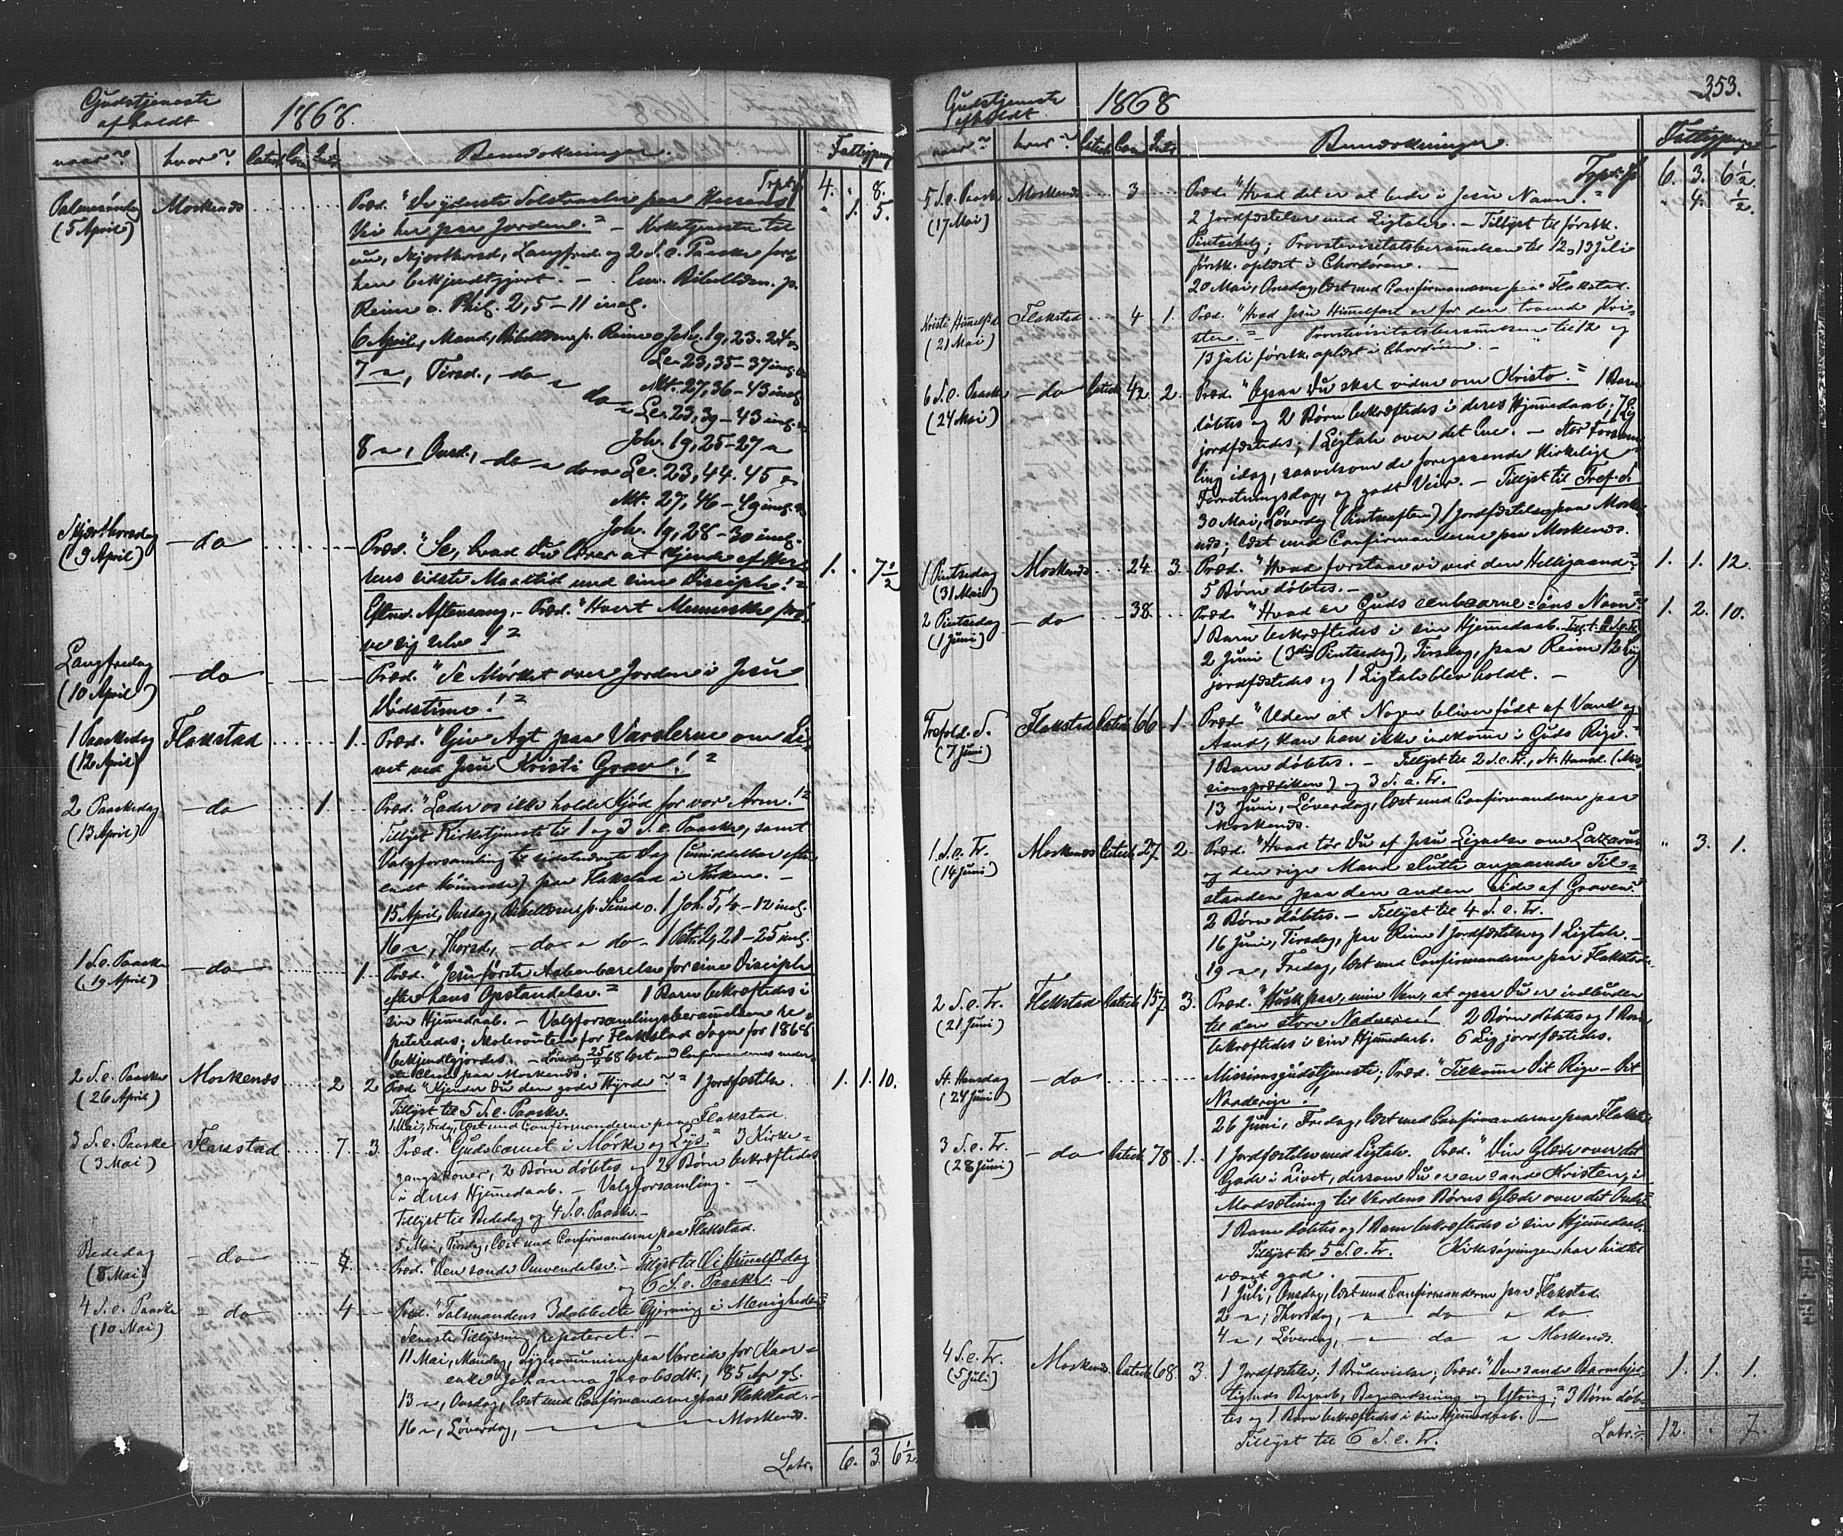 Gudstjeneste
afholdt
1868.
naar? hvor? Catech. Com. Intr. Bemærkninger. Fattigpung
Trpt. 4. " 8.
Palmesøndag Moskenæs Præd. "De yderste Solstraaler paa Herrens " 1. 5.
(5 April) Vei her paa Jorden." – Kirketjeneste til
nu, Skjærthorsd, Langfred. og 2 S. e. Paaske
hen bekjendtgjort. – Em. Bibellæsn. p.
Reine o. Phil. 2, 5–11 incl.
6 April, Mand., Bibellæsn. p. Reine o. Joh. 19, 23. 24
Lc. 23, 35–37 incl.
7 " , Tirsd., do "
Mt. 27, 36–43 incl.
do " Lc. 23, 39–43 incl.
Joh. 19, 25–27 "
8 " , Onsd., do " do " Lc. 23, 44. 45
Mt. 27, 46–49 incl.
Joh. 19, 28–30 incl.
Skjærthorsdag – do Præd. "Se, hvad Du lærer at kjende af Her- 1. . 7½
(9 April) rens sidste Maaltid med sine Disciple!"
Efterm. Aftensang. Præd. "Hvert Menneske prø-
ve sig selv!"
Langfredag – do Præd. "Se Mørket over Jorden i Jesu
(10 April) Dødstime!"
1 Paaskedag Flakstad 1. Præd. "Giv Agt paa Varslerne om Li-
(12 April) vet ved Jesu Kristi Grav!"
2 Paaskedag – do 1. Præd. "Lader os ikke holde Kjød for vor Arm!"
(13 April) Tillyst Kirketjeneste til 1 og 3 S. e. Paaske, samt
Valgforsamling til sidstnævnte Dag (umiddelbar efter
endt ) paa Flakstad i Kirken. –
15 April, Onsdag, Bibellæsn. p. Sund o. 1 Joh. 5, 4–12 incl.
16 " , Thorsd, – do " do 1 Petr. 2, 21–25 incl.
1 S. e. Paaske – do 1. Præd. "Jesu første Aabenbarelse for sine Disciple
(19 April) efter hans Opstandelse." 1 Barn bekræftedes i
sin Hjemmedaab. – Valgforsamlingsberammelsen re-
peteredes; for Flakstad Sogn for 1868
bekjendtgjordes. – Løverdag 25/4 68 læst med Confirmanderne
paa Moskenæs.
2 S. e. Paaske Moskenæs 2 2 Præd. "Kjender Du den gode Hyrde?" 1 Jordfæstelse. 1. 1. 10.
(26 April) Tillyst til 5 S. e. Paaske.
1 Mai, Fredag, læst med Confirmanderne paa Flakstad.
3 S. e. Paaske Flakstad 7 3. Præd. "Gudsbarnet i Mørke og Lys" 3 Kirke-
(3 Mai) gangskoner, 2 Børn døbtes og 2 Børn bekræftedes
i deres Hjemmedaab. – Valgforsamling. –
Tillyst til Bededag og 4 S. e. Paaske –
5 Mai, Tirsdag, læst med Confirmanderne paa Flakstad.
Bededag – do Præd. "Den sande Omvendelse." – Tillyst til Chr. Himmelfdag
(8 Mai) og 6 S. e. Paaske. –
4 S. e. Paaske " do 4 Præd. "Talsmandens 3dobbelte Gjerning i Menigheden"
(10 Mai) Seneste Tillysning repeteret. –
11 Mai, Mandag, Sygecommunion paa for
enke Johanna Jacobsdtr., 85 Aar gl.
13 " , Onsdag, læst med Confirmanderne paa Flakstad. –
16 " , Løverdag, – – – Moskenæs.
Latr. 6. 3. 6½
Gudstjeneste
afholdt
1868 353.
naar? hvor? Catech. Com. Intr. Bemærkninger Fattigpung
Trpt. 6. 3. 6½
5 S. e. Paaske Moskenæs 3 Præd. "Hvad det er at bede i Jesu Navn." " 4. ½
(17 Mai) 2 Jordfæstelser med Ligtaler. – Tillyst til førstk.
Pintsehelg; Provstevisitatsberammelsen til 12 og 13 Juli
førstk. oplæst i Chordøren. –
20 Mai, Onsdag, læst med Confirmanderne paa Flakstad.
Kristi Himmelfd. Flakstad 4 1. Præd. "Hvad Jesu Himmelfart er for den troende Kri-
(21 Mai) sten." Provstevisitatsberammelsen til 12 og
13 Juli førstk. oplæst i Chordøren. –
6 S. e. Paaske – do Catech. 42 2. Præd. "Ogsaa Du skal vidne om Kristo." 1 Barn
(24 Mai) døbtes og 2 Børn bekræftedes i deres Hjemmedaab; 7 Lig
jordfæstedes; 1 Ligtale over det ene. – Stor Forsam-
ling idag, saavelsom de foregaaende kirkelige
Forretningsdage, og godt Veir. – Tillyst til Tref. S.
30 Mai, Løverdag (Pintseaften) 1 Jordfæstelse paa Moske-
næs; læst med Confirmanderne paa Moskenæs.
1 Pintsedag Moskenæs 24. 3. Præd. "Hvad forstaar vi ved den Helligaand" 1. 1. 12.
(31 Mai) 5 Børn døbtes. –
2 Pintsedag – do 38. Præd. "Hvad er Guds eenbaarne Søns Navn" 1. 2. 10.
(1 Juni) 1 Barn bekræftedes i sin Hjemmedaab.
2 Juni (3die Pintsedag), Tirsdag, paa Reine 12 Lig
jordfæstedes og 1 Ligtale blev holdt. –
Trefold. S. Flakstad Catech. 60 1. Præd. "Uden at Nogen bliver født af Vand og
(7 Juni) Aand, kan han ikke indkomme i Guds Rige."
1 Barn døbtes. – Tillyst til 2 S. e. Tr., St. Hansd. (Mis-
sionsprædiken) og 3 S. e. Tr.
13 Juni, Løverdag, læst med Confirmanderne paa
Moskenæs.
1. S. e. Tr. Moskenæs Catech. 27. 2. Præd. "Hvad tør Du af Jesu Lignelse om Lazarus " 3. 1.
(14 Juni) og den rige Mand slutte angaaende Til-
standen paa den anden Side af Graven"
2 Børn døbtes. – Tillyst til 4 S. e. Tr.
16 Juni, Tirsdag, paa Reine 1 Jordfæstelse og 1 Ligtale. –
19 " , Fredag, læst med Confirmanderne paa Flakstad.
2 S. e. Tr. Flakstad Catech. 157. 3. Præd. "Husk paa, min Ven, at ogsaa Du er indbuden
(21 Juni) til den store Nadvere!" 2 Børn døbtes og 1 Barn
bekræftedes i sin Hjemmedaab. 6 Lig jordfæstedes.
St. Hansdag – do Missionsgudstjeneste; Præd. "Tilkomme Dit Rige – Dit
(24 Juni) Naaderige!"
26 Juni, Fredag, læst med Confirmanderne paa Flakstad
3 S. e. Tr. – do Catech. 78. 1. 1 Jordfæstelse med Ligtale. Præd. "Din Glæde over det
(28 Juni) Gode i Livet, dersom Du er en sand Kristen, i
Modsætning til Verdens Børns Glæde over det Onde"
1 Barn døbtes og 1 Barn bekræftedes i sin Hjemmedaab.
Tillyst til 5 S. e. Tr. Kirkesøgningen har hidtil
været god.
1 Juli, Onsdag, læst med Confirmanderne paa Flakstad.
2 " , Thorsdag, – " do " do.
4 " , Løverdag, – " do " Moskenæs.
4 S. e. Tr. Moskenæs Catech. 68. 3. 1 Jordfæstelse. 1 Brudevielse; Præd. "Den sande Barmhjer- 1. 1. 1.
(5 Juli) tigheds Begreb, Begrundning og ", 3 Børn døb-
tes og 1 Barn bekræftedes i sin Hjemmedaab. –
Tillyst til 6 S. e. Tr. Latr. 12. . 7.